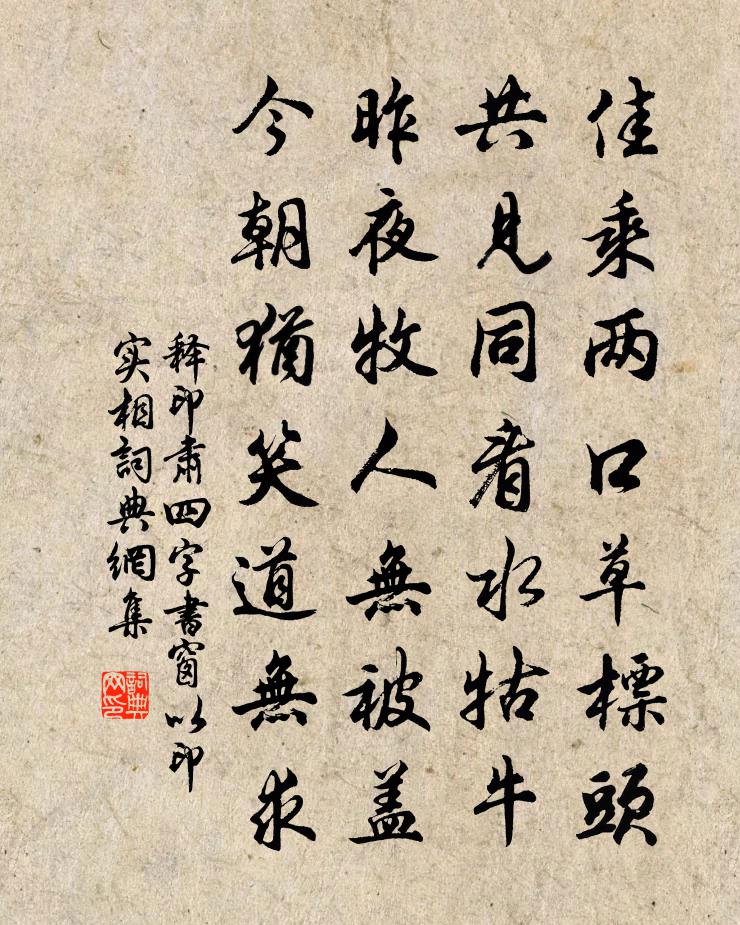 佳乘两口草標頭
共見同看水牯牛
昨夜牧人無被盖
今朝猶笑道無求
释印肃四字書窗以印
实相詞典網集
詞典網印